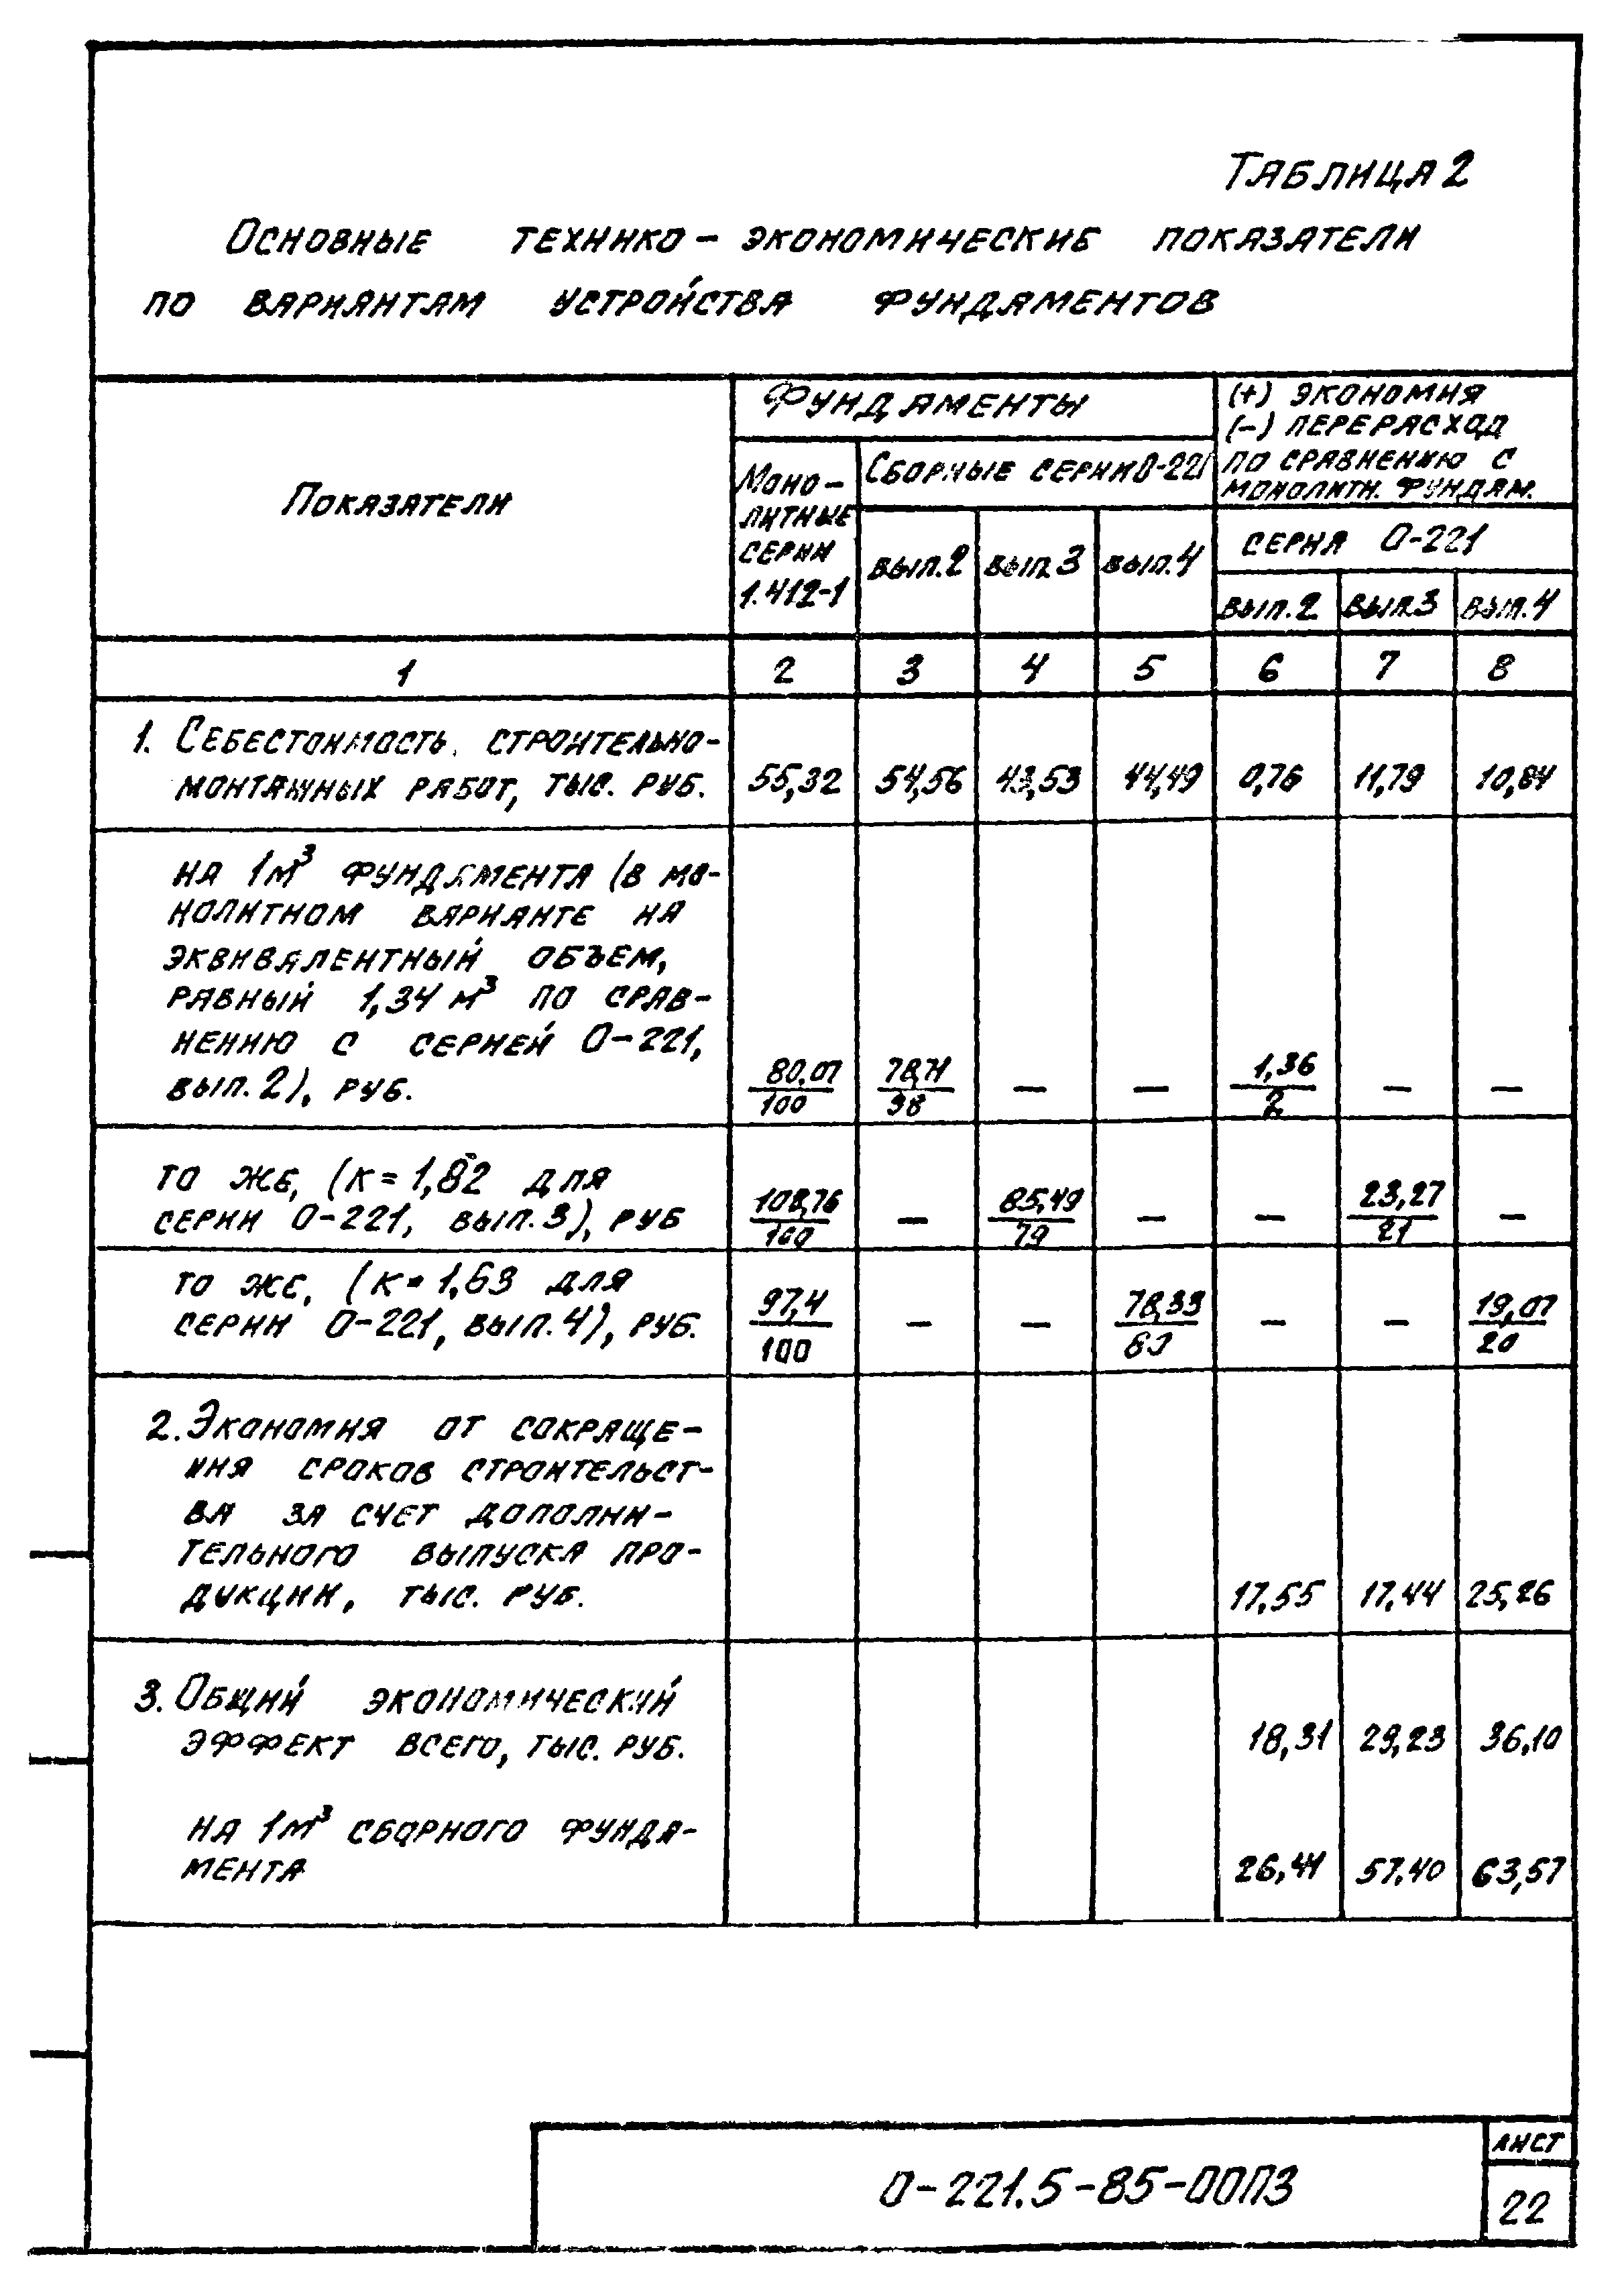 Таблица 2
Основные технико-экономические показатели
по вариантам устройства фундаментов
Показатели
Фундаменты
(+) экономия
(-) перерасход
по сравнению с
монолитн. фундам.
Моно-
литные
серии
1.412-1
Сборные серии 0-221
вып.2 вып.3 вып.4
серия 0-221
вып.2 вып.3 вып.4
1 2 3 4 5 6 7 8
1. Себестоимость строительно-
монтажных работ, тыс. руб. 55,32 54,56 43,53 44,49 0,76 11,79 10,84
на 1м³ фундамента (в мо-
нолитном варианте на
эквивалентный объем,
равный 1,34 м³ по срав-
нению с серией 0-221,
вып.2), руб. 80,07/100 78,71/98 — — 1,36/2 — —
то же, (к=1,82 для
серии 0-221, вып.3), руб 108,76/100 — 85,49/79 — — 23,27/21 —
то же, (к=1,63 для
серии 0-221, вып.4), руб. 97,4/100 — — 78,33/80 — — 19,07/20
2. Экономия от сокраще-
ния сроков строительст-
ва за счет дополни-
тельного выпуска про-
дукции, тыс. руб. 17,55 17,44 25,26
3. Общий экономический
эффект всего, тыс. руб. 18,31 29,23 36,10
на 1м³ сборного фунда-
мента 26,41 57,40 63,57
0-221.5-85-00ПЗ
лист
22